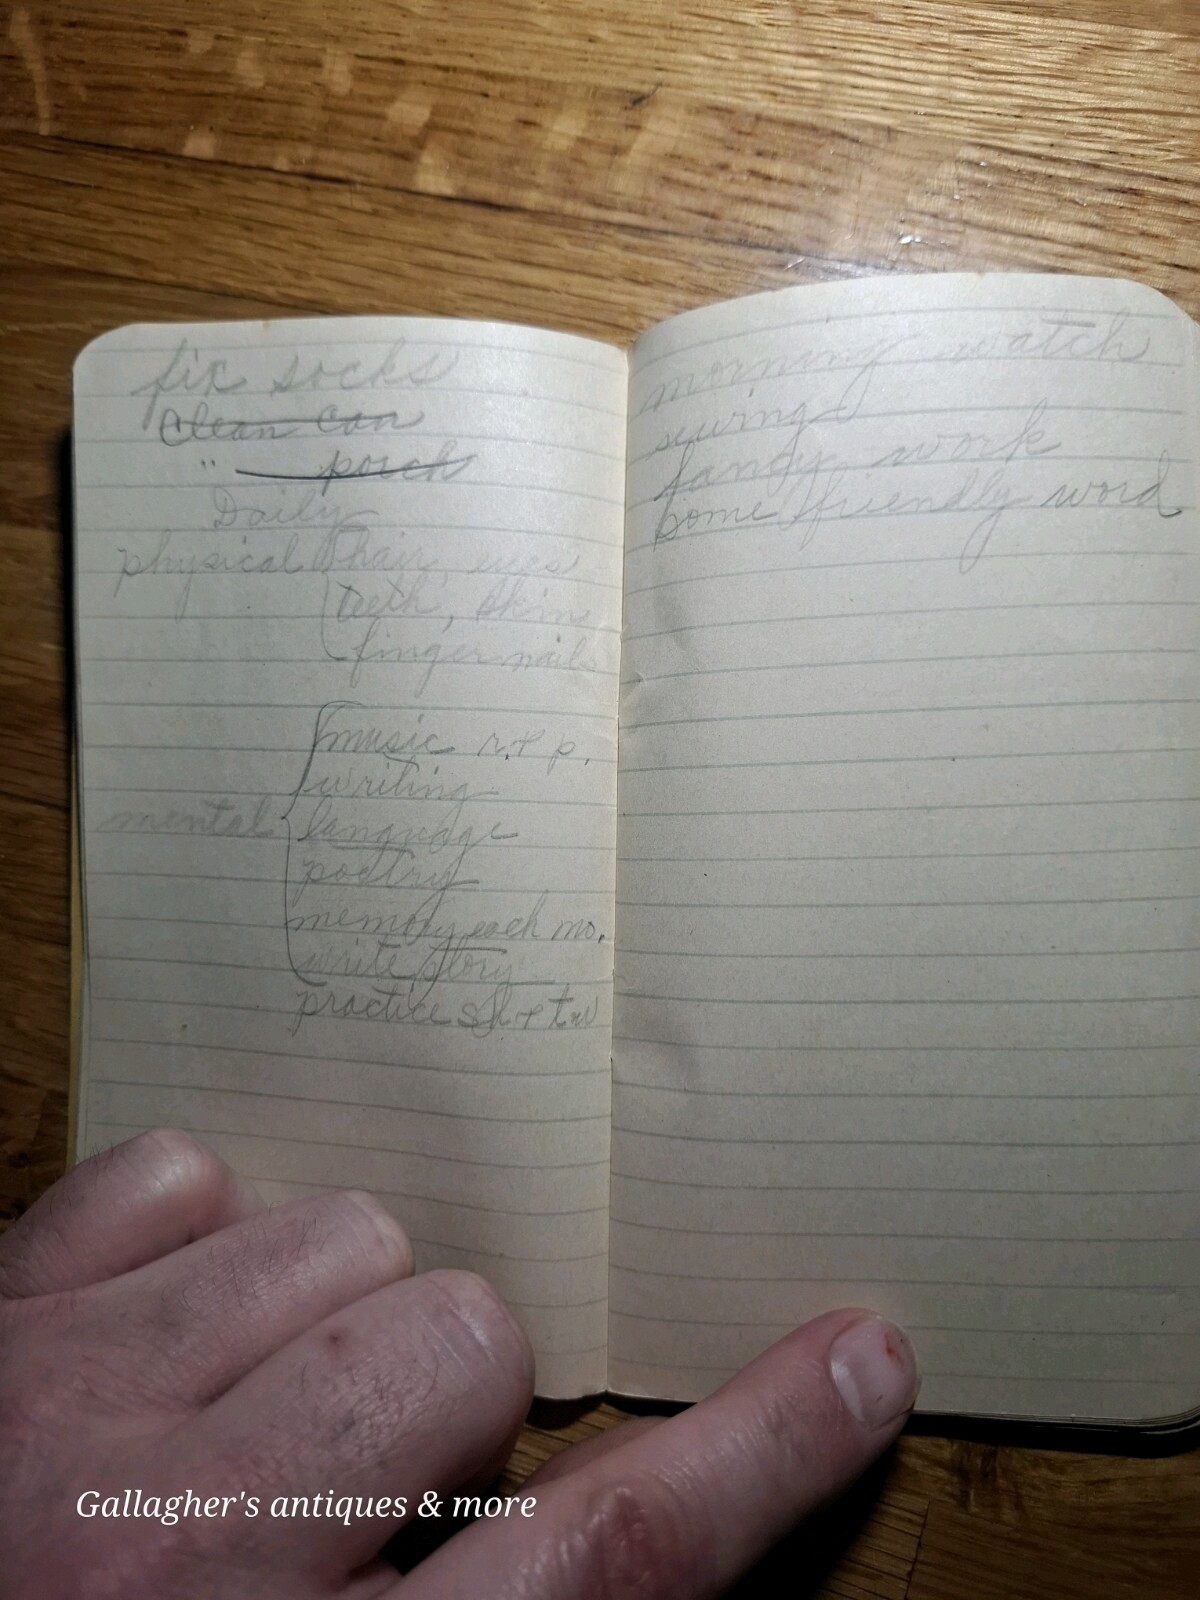 fix socks
Clean can
" porch
Daily
physical hair, eyes
teeth, skin
finger nails
music r. + p.
writing
mental language
poetry
memory each mo.
write story
practice sh + tw
morning watch
sewing
fancy work
some friendly word
Gallagher's antiques & more